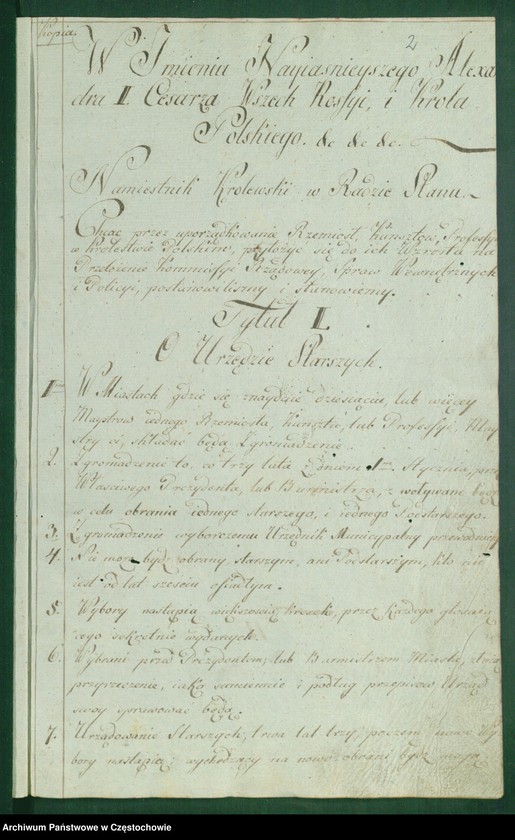 Kopia.
2
W Imieniu Nayiasnieyszego Alexa
dra I. Cesarza Wszech Rossyi, i Krola
Polskiego. &c &c &c.
Namiestnik Krolewski w Radzie Stanu.
Chcąc przez uporządkowanie Rzemiosł, Kunsztow, Professyi
w Krolestwie Polskiem, przyłożyć się do ich Wzrostu na
Przełożenie Kommissyi Rządowey, Spraw Wewnętrznych
i Policyi, postanowilismy i stanowiemy.
Tytuł I.
O Urzędzie Starszych.
1. W Miastach gdzie się znayduie dziesięciu, lub więcey
Maystrow iednego Rzemiosła, kunsztu, lub Professyi, May
stry ci, składać będą Zgromadzenie.
2. Zgromadzenie to, co trzy lata 1. Stycznia, przez
Własciwego Prezydenta, lub Burmistrza, zwoływane będzie
w celu obrania iednego starszego, i iednego Podstarszego.
3. Zgromadzeniu wyborczemu Urzędnik Municypalny przewodniczy
4. Nie może bydź obrany starszym, ani Podstarszym, kto nie
iest od lat szesciu osiadłym.
5. Wybory nastąpią większoscią kresek, przez każdego głosuią
cego sekretnie wydanych.
6. Wybrani przed Prezydentem, lub Burmistrzem Miasta,
przyrzeczenie, iako sumiennie i podług przepisow Urząd
swoy sprawować będą.
7. Urzędowanie Starszych, trwa lat trzy, poczem nowe Wy
bory nastąpią; wychodzący na nowo obrani bydź mogą
Archiwum Państwowe w Częstochowie